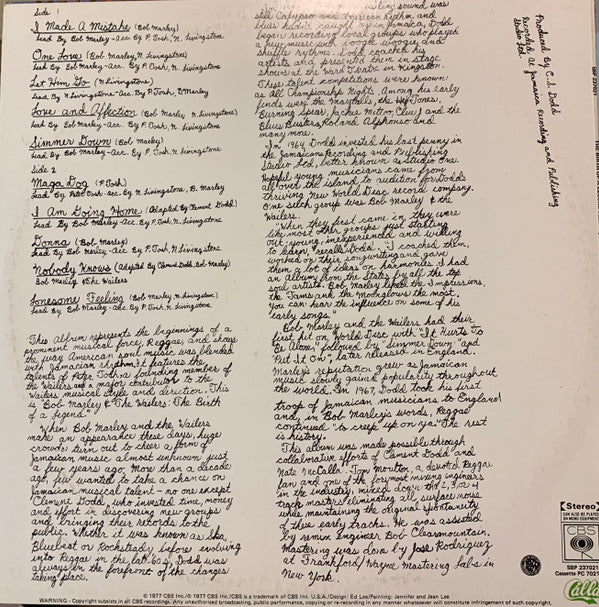 Side 1
I Made A Mistake (Bob Marley)
Lead By Bob Marley-Acc. By P. Tosh, N. Livingstone
One Love (Bob Marley, N. Livingstone)
Lead By Bob Marley-Acc. By P. Tosh, N. Livingstone
Let Him Go (N. Livingstone)
Lead By N. Livingstone-Acc. By P. Tosh, B. Marley
Love and Affection (Bob Marley, N. Livingstone)
Lead By Bob Marley-Acc. By P. Tosh, N. Livingstone
Simmer Down (Bob Marley)
Lead By Bob Marley-Acc. By P. Tosh, N. Livingstone
Side 2
Maga Dog (P. Tosh)
Lead By Peter Tosh-acc. by N. Livingstone, B. Marley
I Am Going Home (Adapted By Clement Dodd)
Lead By Bob Marley-Acc. By P. Tosh, N. Livingstone
Donna (Bob Marley)
Lead By Bob Marley-Acc. By P. Tosh, N. Livingstone
Nobody Knows (Adapted By Clement Dodd, Bob Marley)
Bob Marley & The Wailers
Lonesome Feeling (Bob Marley, N. Livingstone)
Lead By Bob Marley-Acc. By P. Tosh, N. Livingstone
This Album represents the beginnings of a
prominent musical force, Reggae; and shows
the way American soul music was blended
with Jamaican rhythm. It features the
talents of Peter Tosh, a founding member of
the Wailers and a major contributor to the
Wailers musical style and direction. This
is "Bob Marley & The Wailers: The Birth
of a Legend."
When Bob Marley and the Wailers
make an appearance these days, huge
crowds turn out to cheer a form of
Jamaican music almost unknown just
a few years ago. More than a decade
ago, few wanted to take a chance on
Jamaican musical talent - no one except
Clement Dodd, who invested time, money
and effort in discovering new groups
and bringing their records to the
public. Whether it was known as Ska,
Bluebeat or Rocksteady before evolving
into Reggae in the late 60's, Dodd was
always in the forefront of the changes
taking place.
sound was
still Calypso and American Rhythm and
Blues hadn't caught on in Jamaica, Dodd
began recording local groups who played
a few music with boogie woogie and
shuffle rhythms. Dodd coached his
artists and presented them in stage
shows at the Ward Theatre in Kingston.
These talent competitions were known
as All Championship Nights. Among his early
finds were the Maytalls, the HepTones,
Burning Spear, Jackie Mittoo, Clue J and the
Blues Busters, Roland Alphonso and
many more.
In 1964, Dodd invested his last penny in
the Jamaican Recording and Publishing
Studio Ltd., better known as Studio One.
Hopeful young musicians came from
all over the island, to audition for Dodds
thriving New World Disc record company.
One such group was Bob Marley & the
Wailers.
"When they first came in they were
like most other groups just starting
out: young, inexperienced and willing
to learn", recalls Dodd. "I coached them,
worked on their songwriting and gave
them a lot of ideas on harmonies. I had
an album from the States by all the top
soul artists. Bob Marley liked the Impressions,
the Tams and the Moonglows the most.
You can hear the influence on some of his
early songs."
Bob Marley and the Wailers had their
first hit on World Disc with "It Hurts To
Be Alone," followed by "Simmer Down" and
"Put It On"; later released in England.
Marley's reputation grew as Jamaican
music slowly gained popularity throughout
the world. In 1967, Dodd took his first
troop of Jamaican musicians to England
and, in Bob Marley's words, Reggae
continued "to creep up on ya." The rest
is history.
This album was made possible through
collaborative efforts of Clement Dodd and
Nate McCalla. Tom Moulton, a devoted Reggae
fan and one of the foremost mixing engineers
in the industry, mixed down the 1 or 2
track masters eliminating all surface noise
while maintaining the original spontaneity
of these early tracks. He was assisted
by remix Engineer Bob Clearmountain.
Mastering was done by José Rodriguez
at Frankford/Wayne Mastering Labs in
New York.
Produced by C.S. Dodd
Recorded at Jamaica Recording and Publishing
Studio Ltd.
SBP 237021
Stereo
CAN ALSO BE PLAYED
ON MONO EQUIPMENT
CBS
SBP 237021
Cassette PC 7021
Calla
© 1977 CBS Inc./℗ 1977 CBS Inc./CBS is a trademark of CBS Inc. U.S.A./Design: Ed Lee/Painting: Jennifer and Jean Lee
WARNING - Copyright subsists in all CBS recordings. Any unauthorised broadcasting, public performance, copying or re-recording in any manner whatsoever will constitute infringement of such copyright.